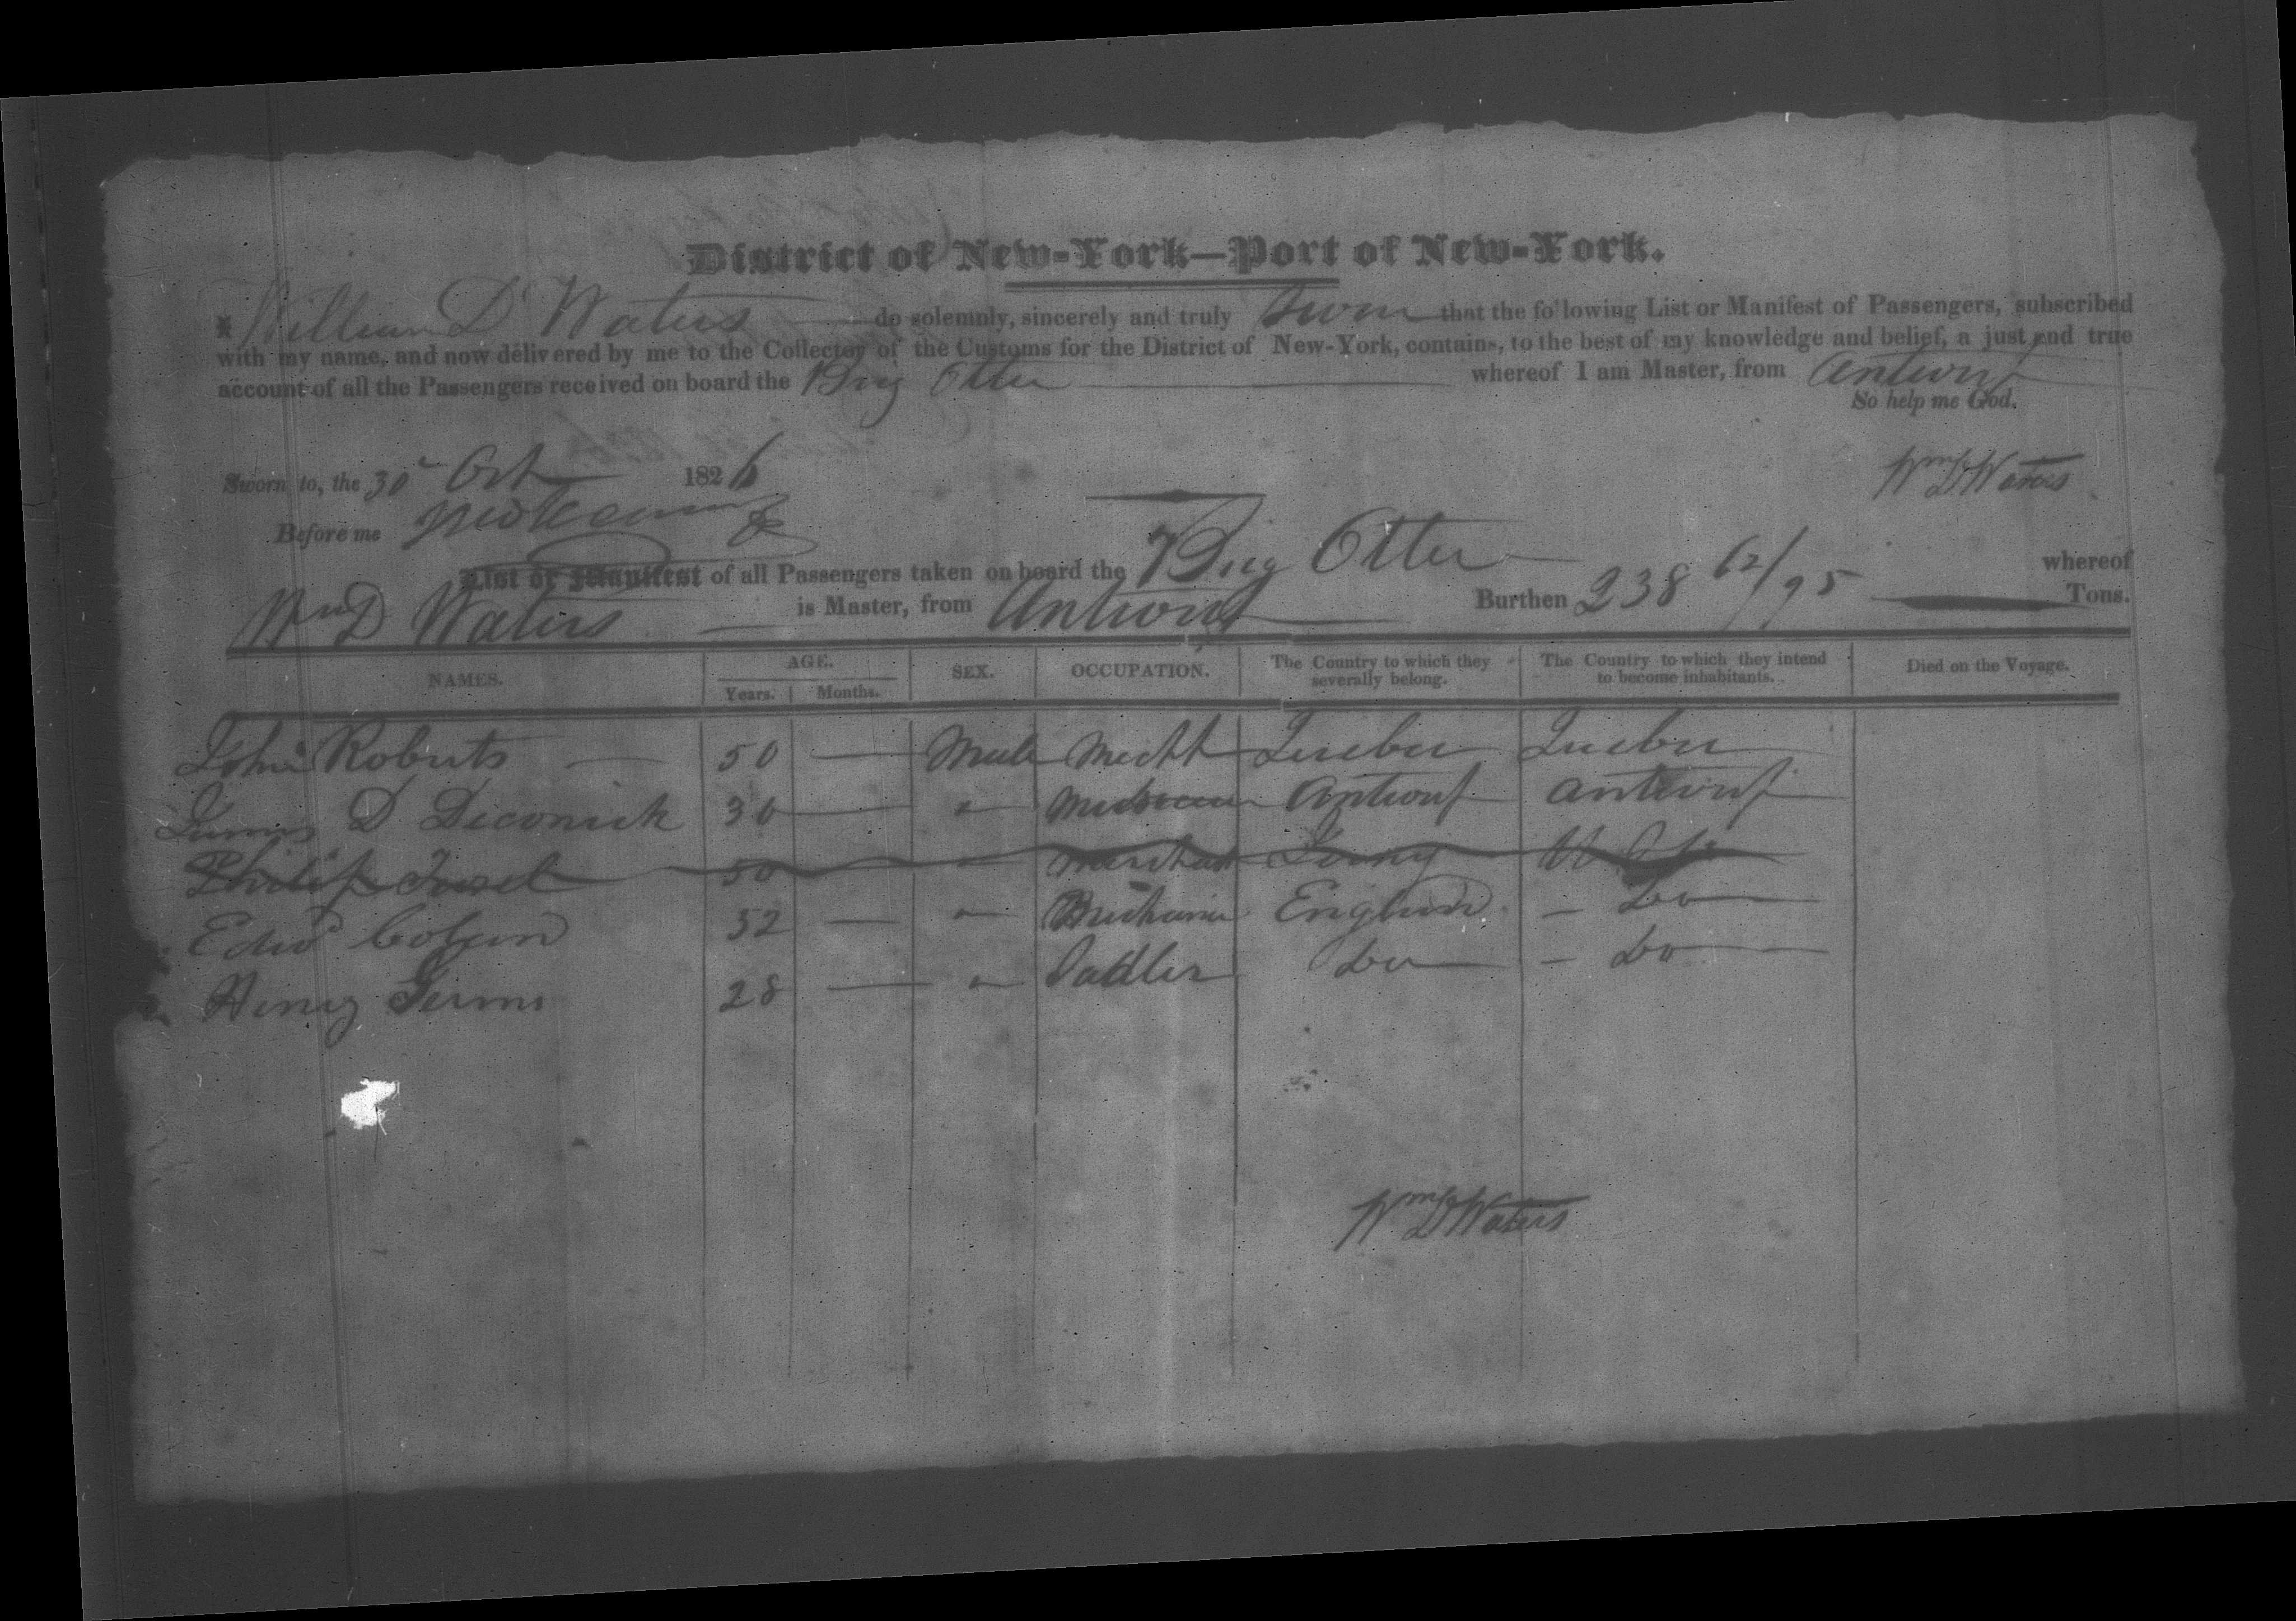 District of New-York—Port of New-York.
I William D Waters do solemnly, sincerely and truly Swear that the following List or Manifest of Passengers, subscribed
with my name, and now delivered by me to the Collector of the Customs for the District of New-York, contains, to the best of my knowledge and belief, a just and true
account of all the Passengers received on board the Brig Otter whereof I am Master, from Antwerp
So help me God.
Sworn to, the 30 Oct 1826
Wm D Waters
Before me
List or Manifest of all Passengers taken on board the Brig Otter whereof
Wm D Waters is Master, from Antwerp Burthen 238 62/95 Tons.
NAMES. AGE. Years. Months. SEX. OCCUPATION. The Country to which they severally belong. The Country to which they intend to become inhabitants. Died on the Voyage.
John Roberts — 50 — Male Mercht Quebec Quebec
D Deconick 30 — " Antwerp Antwerp
Philip 50 " Merchant
Edwd 32 — " England — Do
Henry 28 — " Sadler Do — Do
Wm D Waters